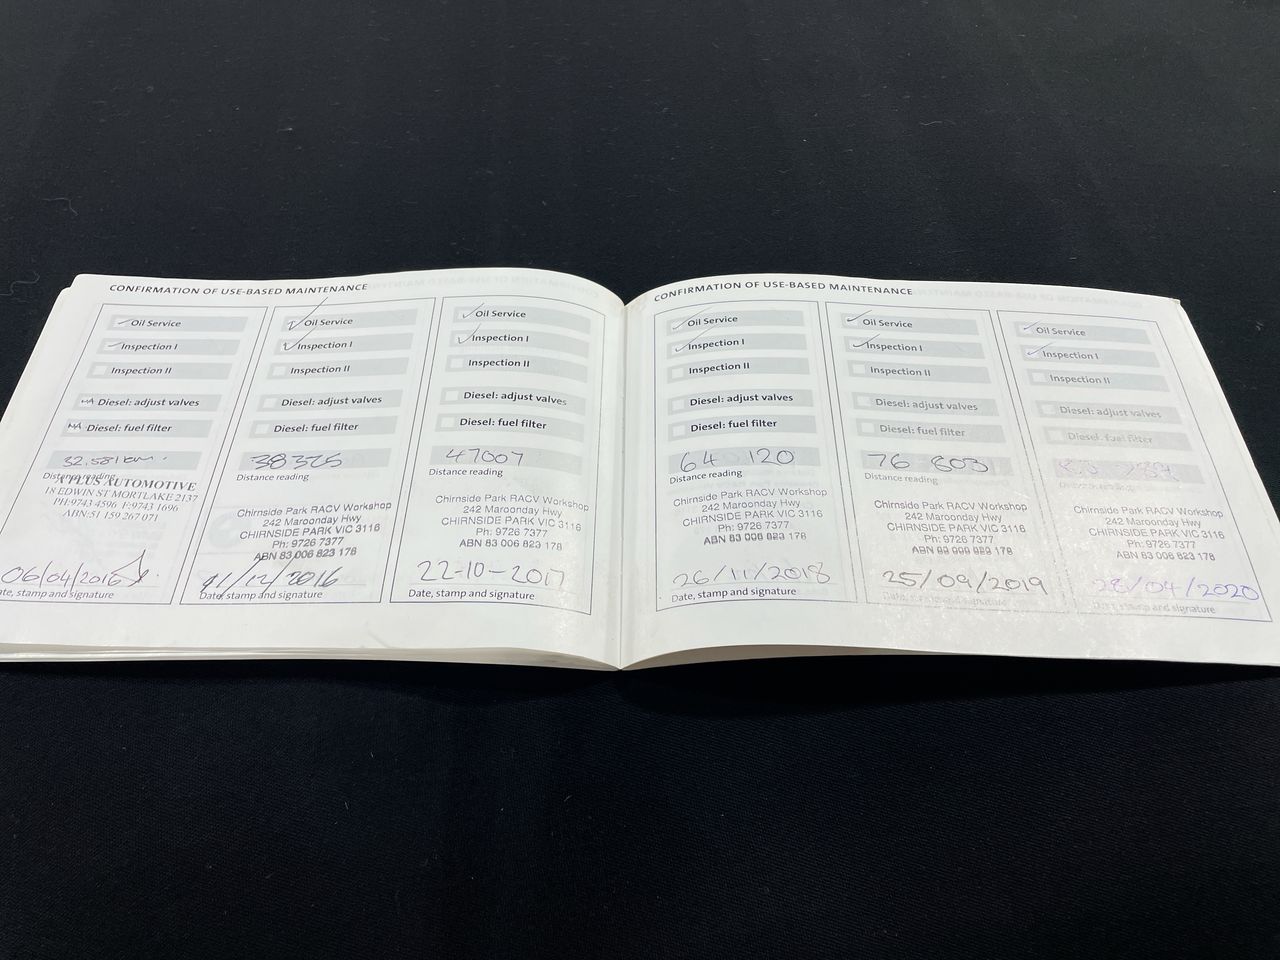 CONFIRMATION OF USE-BASED MAINTENANCE
Oil Service
Inspection I
Inspection II
NA Diesel: adjust valves
NA Diesel: fuel filter
32,581km.
Distance reading
PLUS AUTOMOTIVE
18 EDWIN ST MORTLAKE 2137
PH:9743 4596 F:9743 1696
ABN:51 159 267 071
06/04/2016
Date, stamp and signature
Oil Service
Inspection I
Inspection II
Diesel: adjust valves
Diesel: fuel filter
38325
Distance reading
Chirnside Park RACV Workshop
242 Maroonday Hwy
CHIRNSIDE PARK VIC 3116
Ph: 9726 7377
ABN 83 006 823 178
/12/2016
Date, stamp and signature
Oil Service
Inspection I
Inspection II
Diesel: adjust valves
Diesel: fuel filter
47007
Distance reading
Chirnside Park RACV Workshop
242 Maroonday Hwy
CHIRNSIDE PARK VIC 3116
Ph: 9726 7377
ABN 83 006 823 178
22-10-2017
Date, stamp and signature
CONFIRMATION OF USE-BASED MAINTENANCE
Oil Service
Inspection I
Inspection II
Diesel: adjust valves
Diesel: fuel filter
64 120
Distance reading
Chirnside Park RACV Workshop
242 Maroonday Hwy
CHIRNSIDE PARK VIC 3116
Ph: 9726 7377
ABN 83 006 823 178
26/11/2018
Date, stamp and signature
Oil Service
Inspection I
Inspection II
Diesel: adjust valves
Diesel: fuel filter
76 803
Distance reading
Chirnside Park RACV Workshop
242 Maroonday Hwy
CHIRNSIDE PARK VIC 3116
Ph: 9726 7377
ABN 83 006 823 178
25/09/2019
Date, stamp and signature
Oil Service
Inspection I
Inspection II
Diesel: adjust valves
Diesel: fuel filter
Distance reading
Chirnside Park RACV Workshop
242 Maroonday Hwy
CHIRNSIDE PARK VIC 3116
Ph: 9726 7377
ABN 83 006 823 178
28/04/2020
Date, stamp and signature